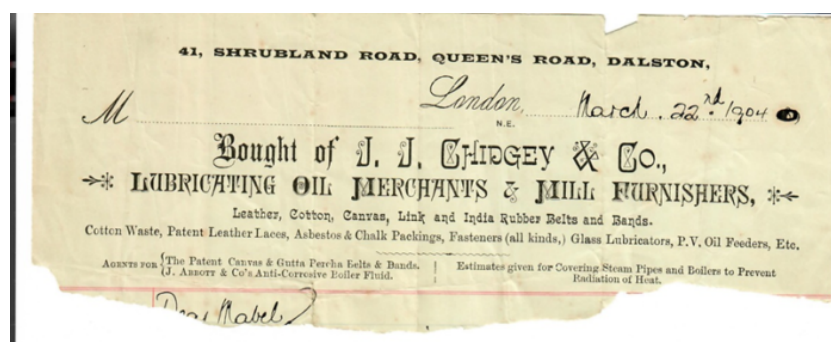 41, SHRUBLAND ROAD, QUEEN'S ROAD, DALSTON,
London, March. 22nd. 1904
N.E.
M
Bought of J. J. CHIDGEY & CO.,
LUBRICATING OIL MERCHANTS & MILL FURNISHERS,
Leather, Cotton, Canvas, Link and India Rubber Belts and Bands.
Cotton Waste, Patent Leather Laces, Asbestos & Chalk Packings, Fasteners (all kinds,) Glass Lubricators, P.V. Oil Feeders, Etc.
AGENTS FOR {The Patent Canvas & Gutta Percha Belts & Bands.
{J. ABBOTT & Co's Anti-Corrosive Boiler Fluid.
Estimates given for Covering Steam Pipes and Boilers to Prevent
Radiation of Heat.
Dear Mabel